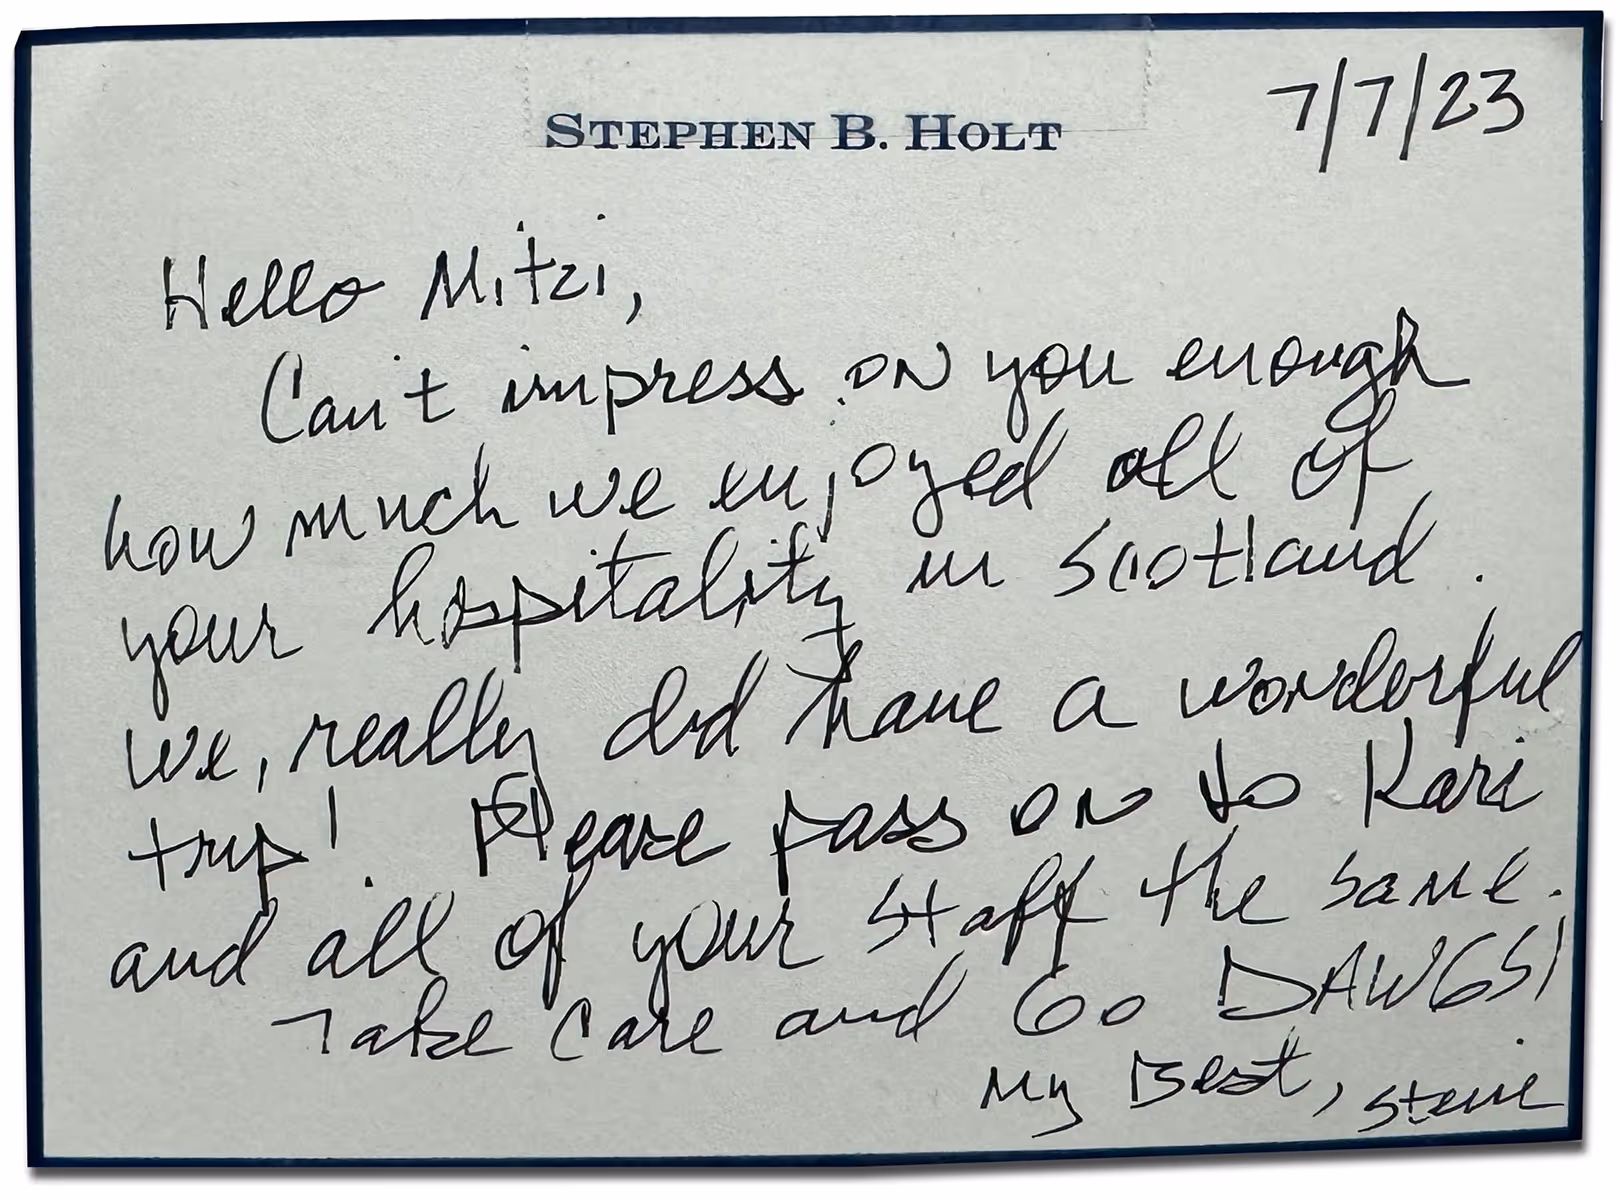 STEPHEN B. HOLT
7/7/23
Hello Mitzi,
Can't impress on you enough
how much we enjoyed all of
your hospitality in Scotland.
We, really did have a wonderful
trip! Please pass on to Kari
and all of your staff the same.
Take Care and Go DAWGS!
My Best, Stevie